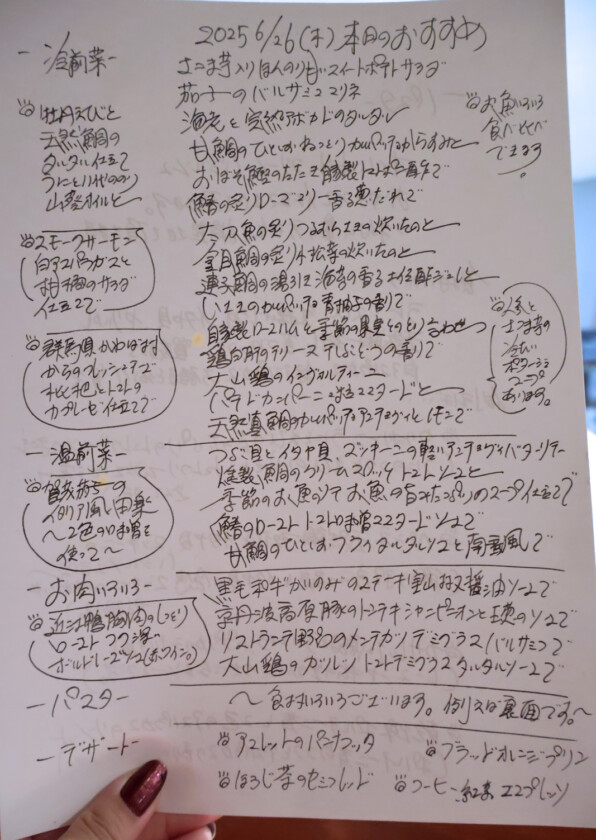 2025 6/26 (木) 本日のおすすめ
ー冷前菜ー
さつま芋入りほんのり甘いスイートポテトサラダ
茄子のバルサミコマリネ
海老と完熟アボカドのタルタル
甘鯛のひとしおねっとりカルパッチョからすみと
おぼそ鰹のたたき 燻製トマトポン酢で
鰆の炙りローズマリー香る悪たれで
太刀魚の炙り つるむらさきの炊いたのと
金目鯛の炙り 小松菜の炊いたのと
連子鯛の湯引き 海苔の香る土佐酢ジュレと
しまあじのカルパッチョ 青柚子の香りで
自家製ロースハムと季節の果実とのとり合わせ
鶏白肝のテリーヌ 干しぶどうの香りで
大山鶏のインヴォルティーニ
パテドカンパーニュ 粒マスタードと
天然真鯛のカルパッチョ アンチョヴィとレモンで
お魚いろいろ
食べくらべ
できます。
牡丹えびと
天然鯛の
タルタル仕立て
うにと八代ののり
山葵オイルと
スモークサーモン
白アスパラガスと
柑橘のサラダ
仕立てで
群馬県かわば村
からのフレッシュチーズ
枇杷とトマトの
カプレーゼ仕立てで
さつま芋の
冷たい
ポタージュ
スープ
あります。
ー温前菜ー
つぶ貝とイタヤ貝、ズッキーニの軽いアンチョヴィバターソテー
燻製鯛のクリームコロッケ トマトソースと
季節のお魚のソテー お魚の旨みたっぷりのスープ仕立てで
鰆のロースト トマト味噌マスタードソースで
甘鯛のひとしおフライ タルタルソースと南蛮風で
賀茂茄子の
イタリア風田楽
〜2色の味噌を
使って〜
ーお肉いろいろー
黒毛和牛がのみのステーキ 実山椒醤油ソースで
京丹波高原豚のトンテキ シャンピニオンと玉ねぎのソースで
リストランテ野呂のメンチカツ デミグラスバルサミコで
大山鶏のカツレツ トマトデミグラスタルタルソースで
近江鴨胸肉のしっとり
ロースト コク深
ボルドレーズソース(赤ワイン)
ーパスター
〜食材いろいろございます。例えば裏面です。〜
ーデザートー
アメレットのパンナコッタ
ブラッドオレンジプリン
ほうじ茶のセミフレッド
コーヒー 紅茶 エスプレッソ